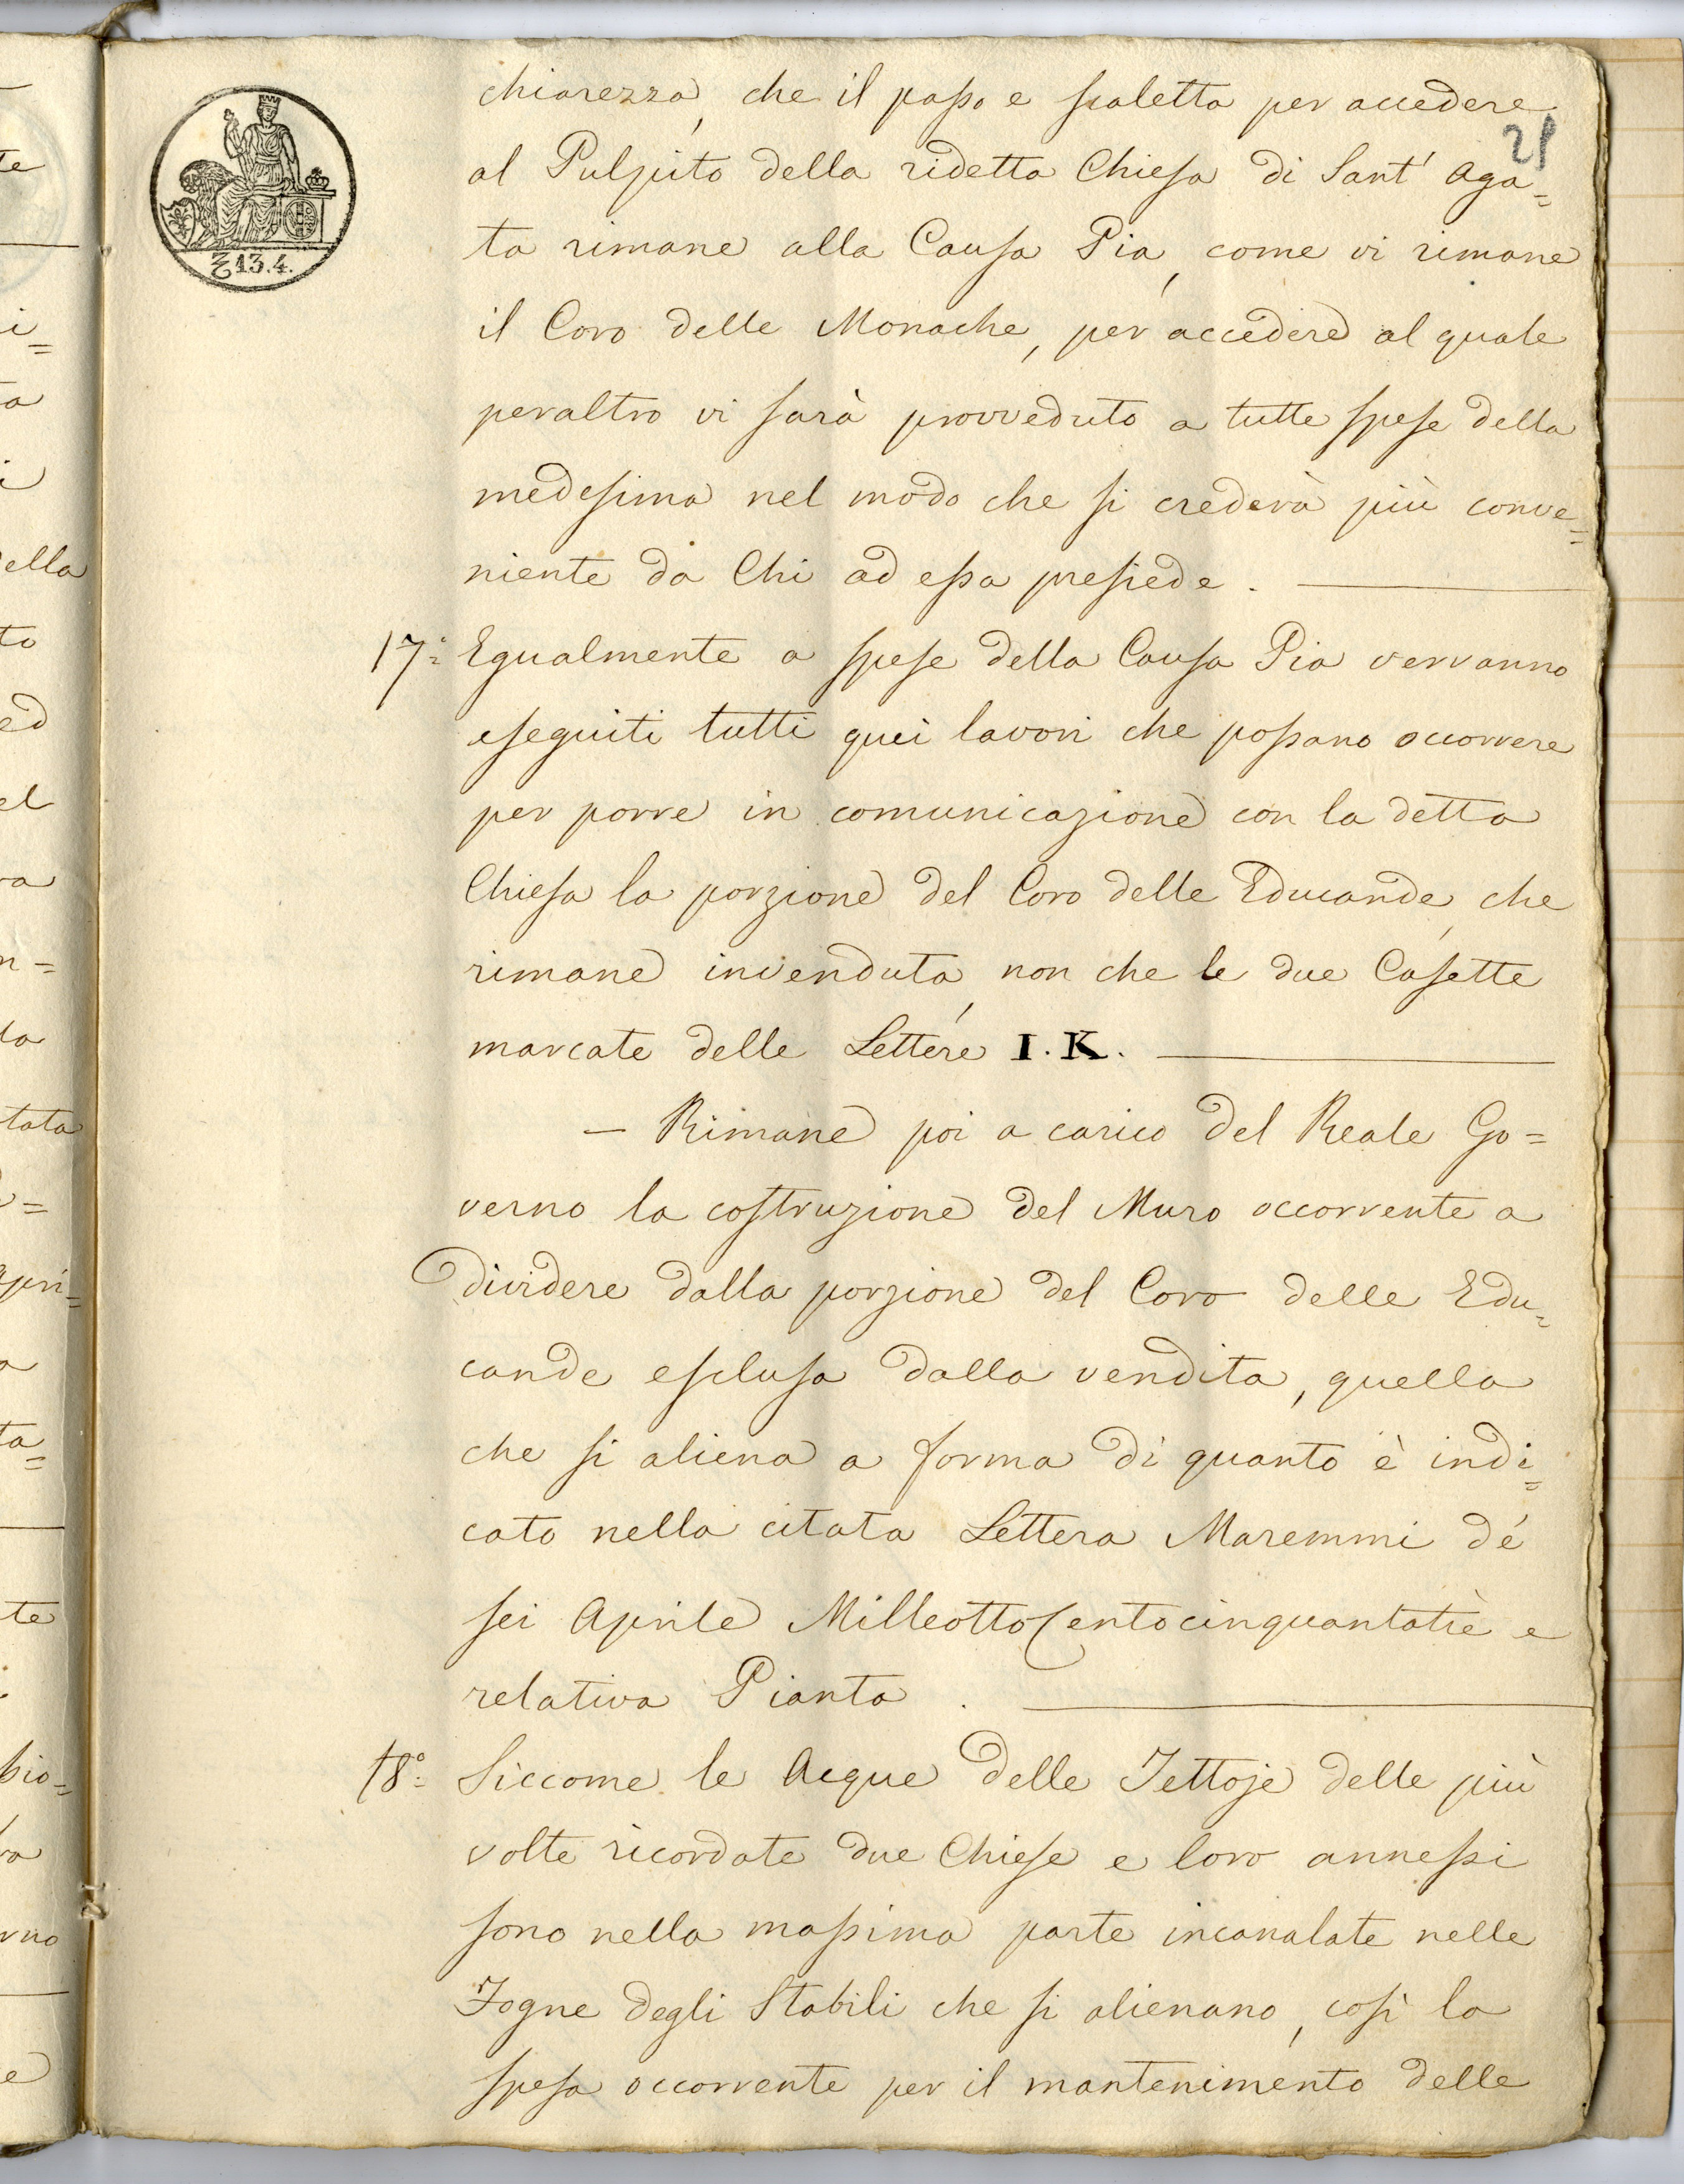 21
13.4.
chiarezza, che il passo e scaletta per accedere
al Pulpito della ridetta Chiesa di Sant' Aga=
ta rimane alla Causa Pia, come vi rimane
il Coro delle Monache, per accedere al quale
peraltro vi sarà provveduto a tutte spese della
medesima nel modo che si crederà più conve=
niente da Chi ad essa presiede.
17.° Egualmente a spese della Causa Pia verranno
eseguiti tutti quei lavori che possano occorrere
per porre in comunicazione con la detta
Chiesa la porzione del Coro delle Educande, che
rimane invenduta, non che le due Casette
marcate delle Lettere I. K.
— Rimane poi a carico del Reale Go=
verno la costruzione del Muro occorrente a
dividere dalla porzione del Coro delle Edu=
cande esclusa dalla vendita, quella
che si aliena a forma di quanto è indi=
cato nella citata Lettera Maremmi de'
sei Aprile MilleottoCentocinquantatrè e
relativa Pianta.
18.° Siccome le Acque delle Tettoje delle più
volte ricordate due Chiese e loro annessi
sono nella massima parte incanalate nelle
Fogne degli Stabili che si alienano, così la
spesa occorrente per il mantenimento delle